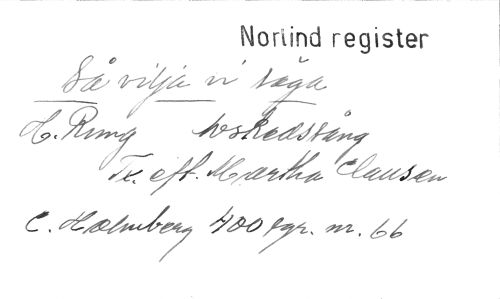 Norlind register
Så vilja vi säga
H. Rung Avskedssång
Tr. eft. Martha Clausen
C. Holmberg 400 sgr. nr. 66